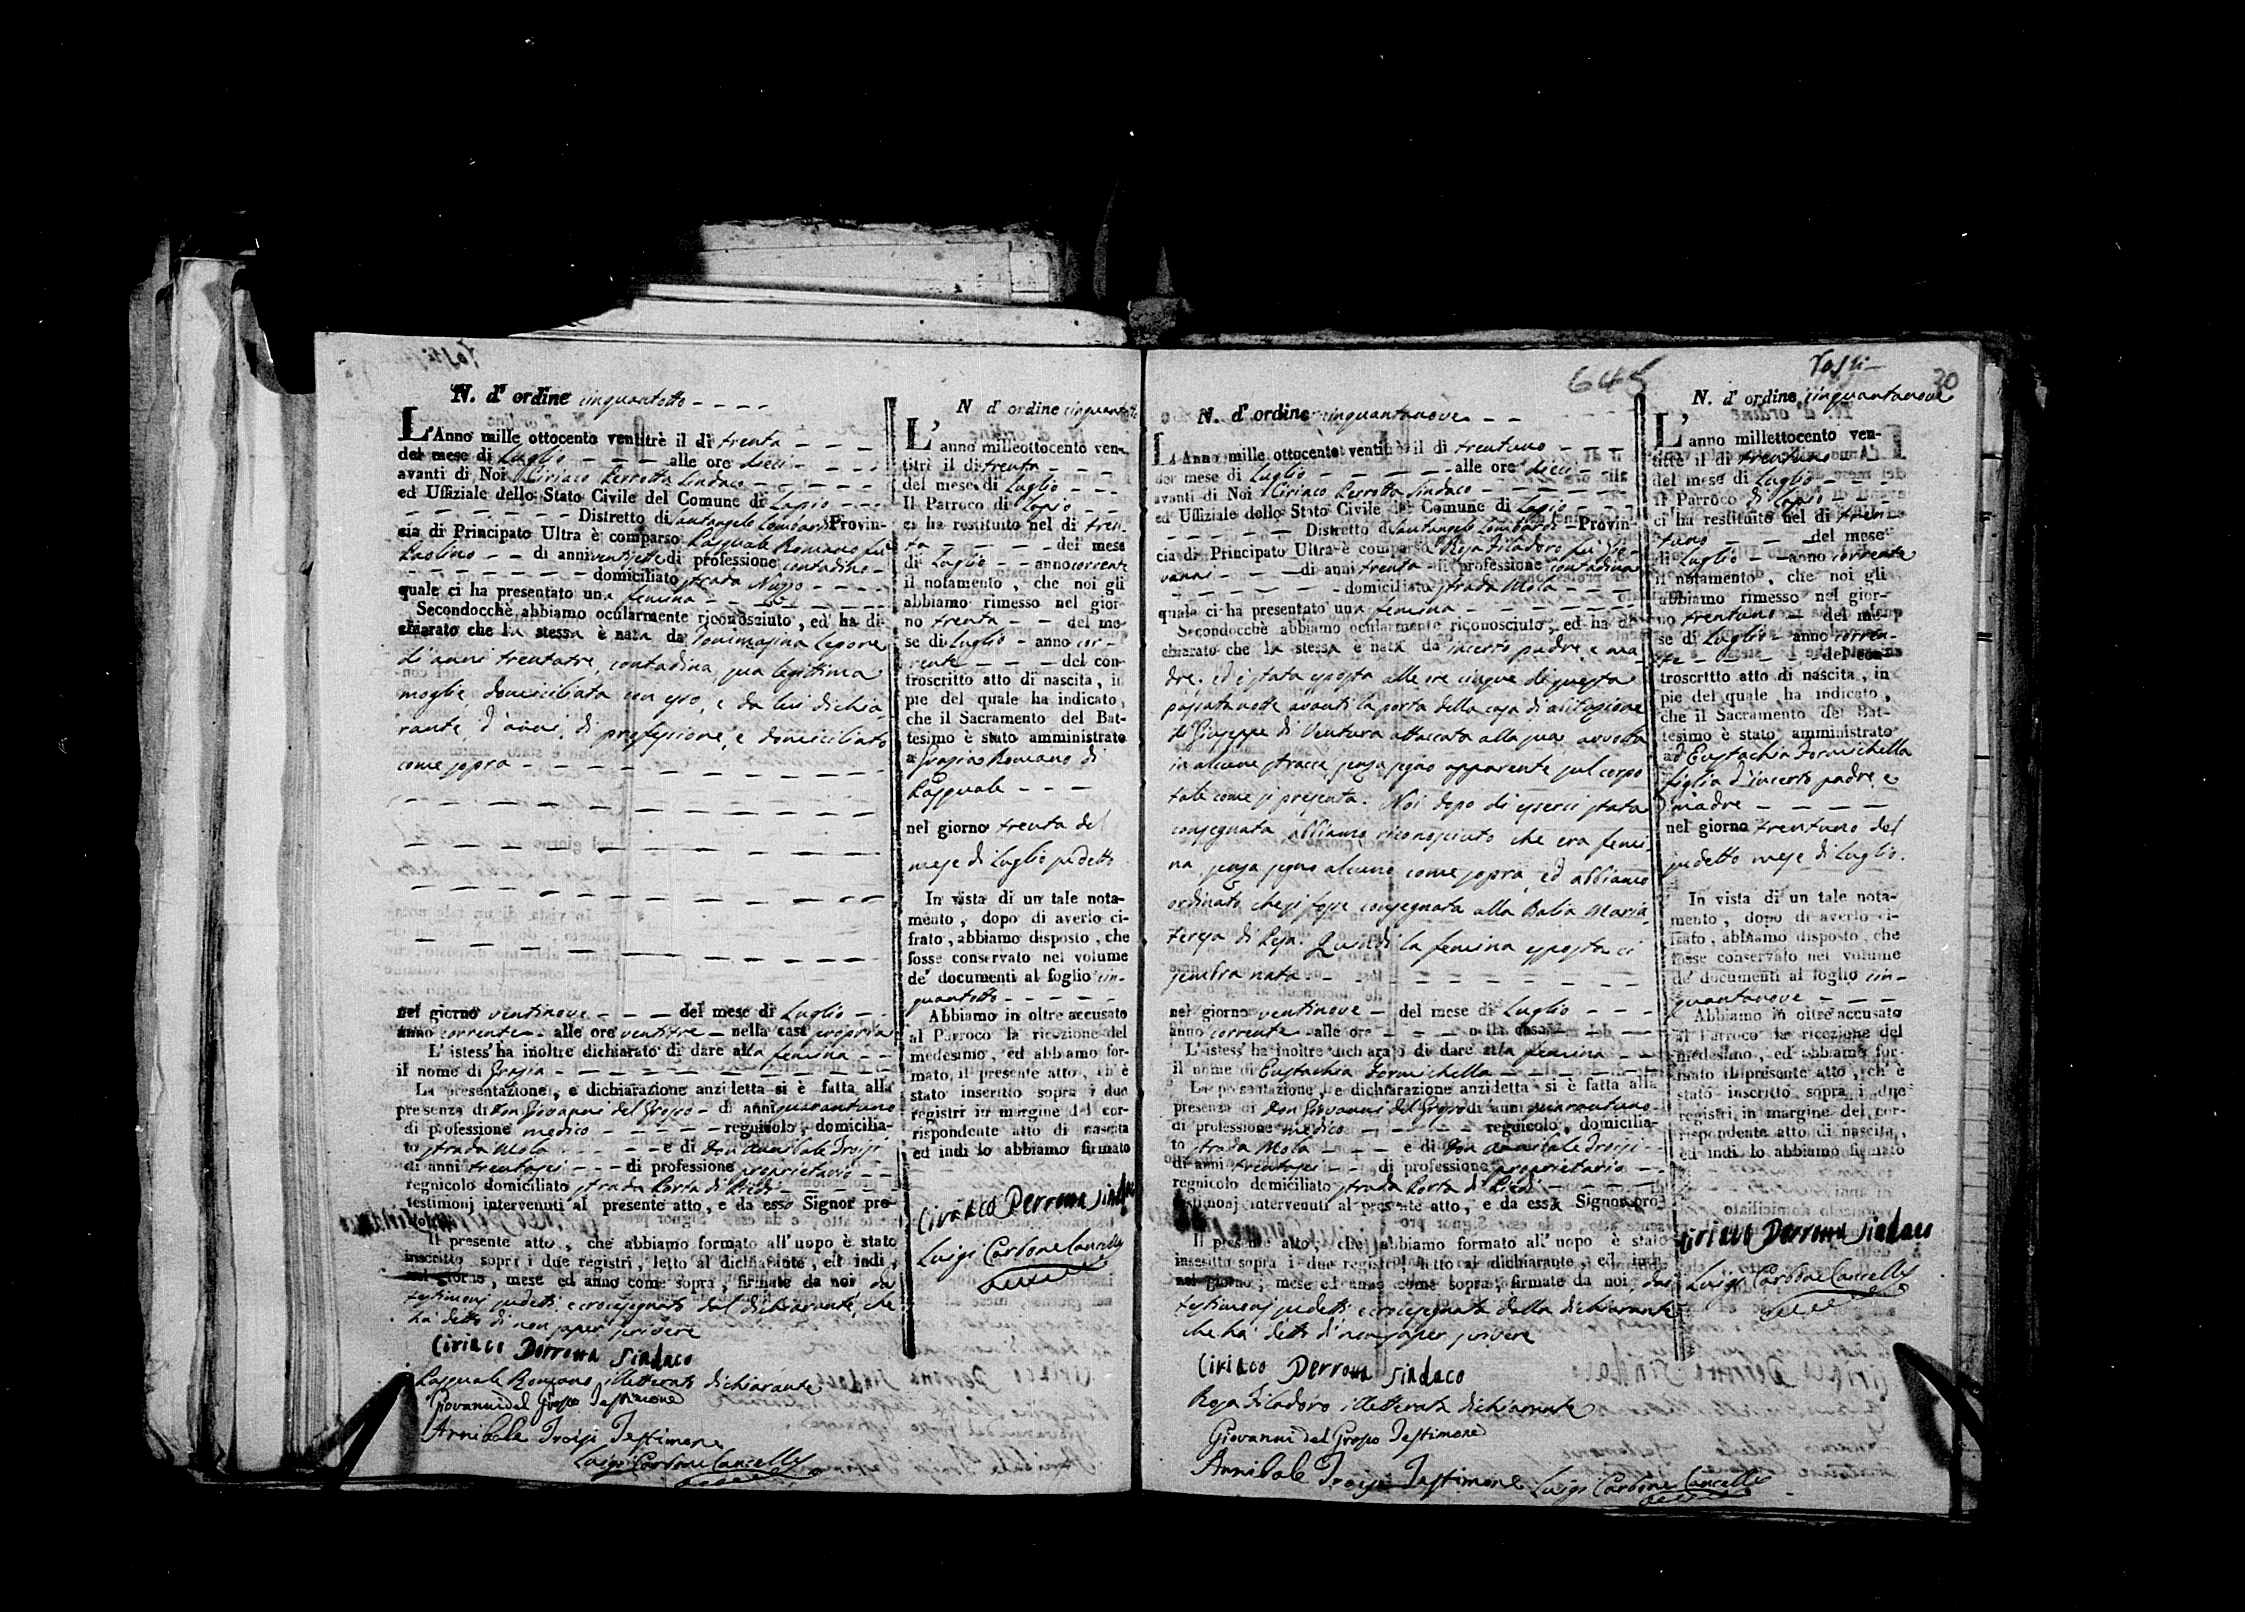 N. d' ordine cinquantotto
L'Anno mille ottocento ventitrè il di trenta
del mese di Luglio alle ore dieci
avanti di Noi Ciriaco Perrotta Sindaco
ed Uffiziale dello Stato Civile del Comune di Lapio
Distretto di Santangelo Lombardi Provin-
cia di Principato Ultra è comparso Pasquale Romano fu
Paolino di anni ventisette di professione contadino
domiciliato strada Nuzzo
quale ci ha presentato una femina
Secondocchè abbiamo ocularmente riconosciuto, ed ha di-
chiarato che la stessa è nata da Tommasina Lepore
di anni trentatre, contadina, sua legittima
moglie domiciliata con esso, e da lui dichia-
rante, d'anni, di professione, e domiciliato
come sopra
nel giorno ventinove del mese di Luglio
anno corrente alle ore ventitre nella casa propria
L' istess' ha inoltre dichiarato di dare alla femina
il nome di Grazia
La presentazione, e dichiarazione anzidetta si è fatta alla
presenza di Don Giovanni del Grosso di anni quarantuno
di professione medico regnicolo, domicilia-
to strada Mola e di Don Annibale Troisi
di anni trentasei di professione proprietario
regnicolo domiciliato strada Porta di Piedi
testimonj intervenuti al presente atto, e da esso Signor pro-
Il presente atto, che abbiamo formato all' uopo è stato
inscritto sopra i due registri, letto al dichiarante, ed indi,
nel giorno, mese ed anno come sopra, firmato da noi da
testimonj sudetti, e crocesegnato dal dichiarante, che
ha detto di non saper scrivere
Ciriaco Perrotta Sindaco
Pasquale Romano illetterato dichiarante
Giovanni del Grosso Testimone
Annibale Troisi Testimone
Luigi Carbone Cancell
N d' ordine cinquantotto
L' anno milleottocento ven-
titrè il di trenta
del mese di Luglio
Il Parroco di Lapio
ci ha restituito nel di tren-
ta del mese
di Luglio anno corrente
il notamento, che noi gli
abbiamo rimesso nel gior-
no trenta del me-
se di Luglio anno cor-
rente del con-
troscritto atto di nascita, in
pie del quale ha indicato,
che il Sacramento del Bat-
tesimo è stato amministrato
a Grazia Romano di
Pasquale
nel giorno trenta del
mese di Luglio sudetto
In vista di un tale nota-
mento, dopo di averlo ci-
frato, abbiamo disposto, che
fosse conservato nel volume
de' documenti al foglio cin-
quantotto
Abbiamo in oltre accusato
al Parroco la ricezione del
medesimo, ed abbiamo for-
mato il presente atto, ch' è
stato inscritto sopra i due
registri in margine del cor-
rispondente atto di nascita
ed indi lo abbiamo firmato
Ciriaco Perrotta Sindaco
Luigi Carbone Cancell
645
20
N. d' ordine cinquantanove
L'Anno mille ottocento ventitrè il di trentuno
del mese di Luglio alle ore dieci
avanti di Noi Ciriaco Perrotta Sindaco
ed Uffiziale dello Stato Civile del Comune di Lapio
Distretto di Santangelo Lombardi Provin-
cia di Principato Ultra è comparsa Rosa Filadoro fu Gio-
vanni di anni trenta di professione contadina
domiciliata strada Mola
quale ci ha presentato una femina
Secondocchè abbiamo ocularmente riconosciuto, ed ha di-
chiarato che la stessa è nata da incerto padre, e ma-
dre, ed è stata esposta alle ore cinque di questa
passata notte avanti la porta della casa di abitazione
di Giuseppe di Ventura attaccata alla sua avvolta
in alcune stracce senza segno apparente sul corpo
tale come si presenta. Noi dopo di esserci stata
consegnata abbiamo riconosciuto che era femi-
na, senza segno alcuno come sopra, ed abbiamo
ordinato, che si fosse consegnata alla Balia Maria
Teresa di Pesa. Quindi la femina esposta ci
sembra nata
nel giorno ventinove del mese di Luglio
anno corrente alle ore nella casa
L' istess' ha inoltre dichiarato di dare alla femina
il nome di Eustachia Formichella
La presentazione, e dichiarazione anzidetta si è fatta alla
presenza di Don Giovanni del Grosso di anni quarantuno
di professione medico regnicolo, domicilia-
to strada Mola e di Don Annibale Troisi
di anni trentasei di professione proprietario
regnicolo domiciliato strada Porta di Piedi
testimonj intervenuti al presente atto, e da essa Signor pro-
Il presente atto, che abbiamo formato all' uopo è stato
inscritto sopra i due registri, letto al dichiarante, ed indi,
nel giorno, mese ed anno come sopra, firmato da noi, da
testimonj sudetti, e crocesegnato dalla dichiarante
che ha detto di non saper scrivere
Ciriaco Perrotta Sindaco
Rosa Filadoro illetterata dichiarante
Giovanni del Grosso Testimone
Annibale Troisi Testimone Luigi Carbone Cancell
N. d' ordine cinquantanove
L' anno millettocento ven-
titrè il di trentuno
del mese di Luglio
il Parroco di Lapio
ci ha restituito nel di tren-
tuno del mese
di Luglio anno corrente
il notamento, che noi gli
abbiamo rimesso nel gior-
no trentuno del me-
se di Luglio anno corren-
te del con-
troscritto atto di nascita, in
pie del quale ha indicato,
che il Sacramento del Bat-
tesimo è stato amministrato
ad Eustachia Formichella
figlia d'incerto padre, e
madre
nel giorno trentuno del
sudetto mese di Luglio.
In vista di un tale nota-
mento, dopo di averlo ci-
frato, abbiamo disposto, che
fosse conservato nel volume
de' documenti al foglio cin-
quantanove
Abbiamo in oltre accusato
al Parroco la ricezione del
medesimo, ed abbiamo for-
mato il presente atto, ch' è
stato inscritto sopra i due
registri, in margine del cor-
rispondente atto di nascita,
ed indi lo abbiamo firmato
Ciriaco Perrotta Sindaco
Luigi Carbone Cancell